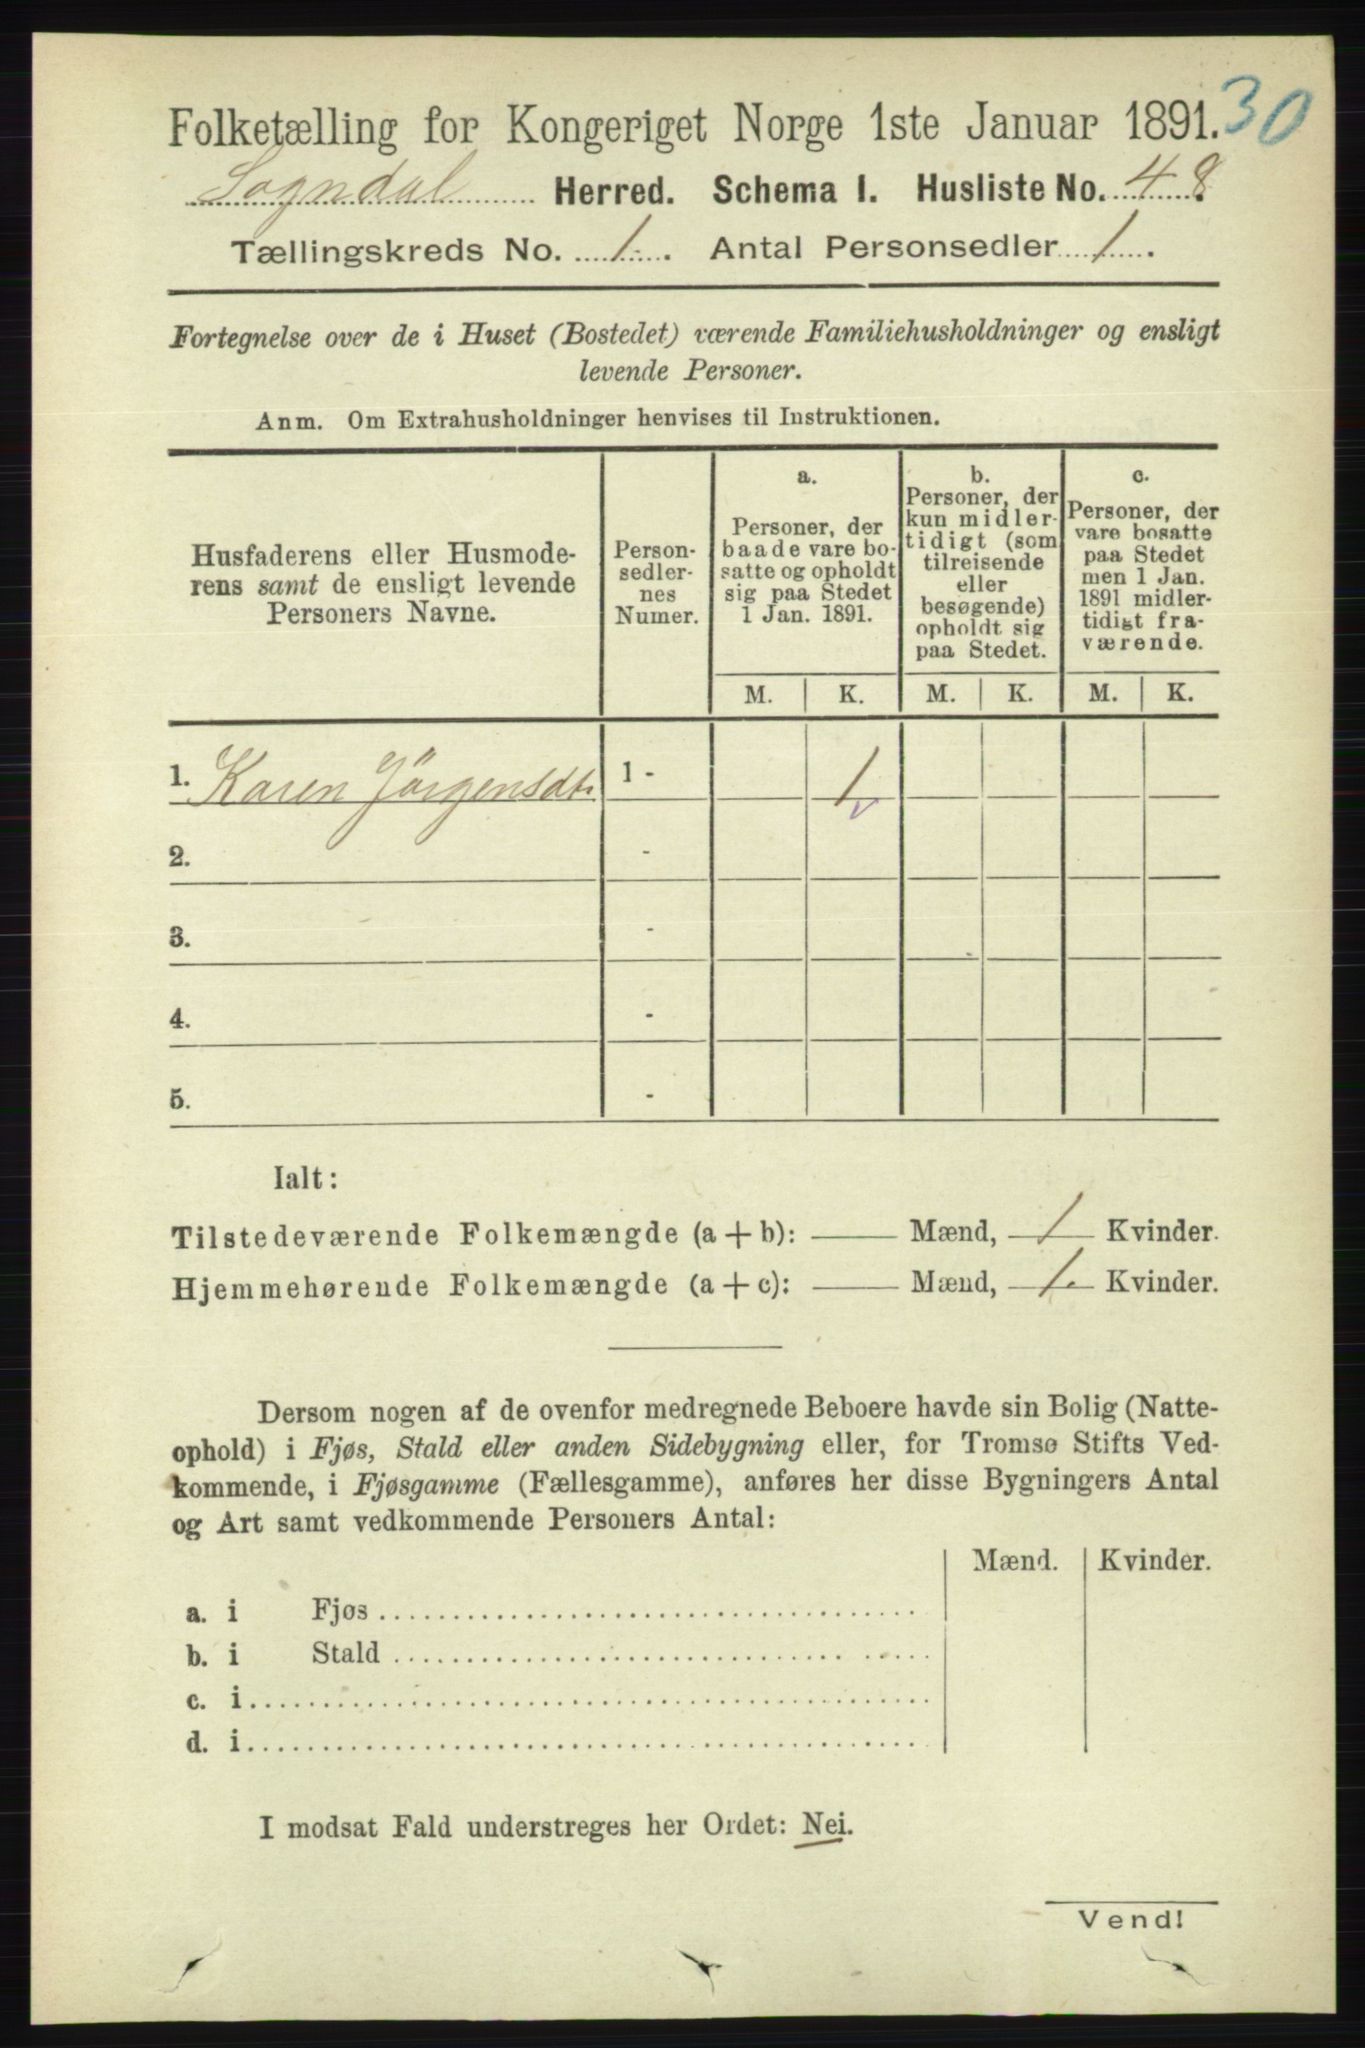 30
Folketælling for Kongeriget Norge 1ste Januar 1891.
Sogndal Herred. Schema I. Husliste No. 48.
Tællingskreds No. 1. Antal Personsedler 1.
Fortegnelse over de i Huset (Bostedet) værende Familiehusholdninger og ensligt
levende Personer.
Anm. Om Extrahusholdninger henvises til Instruktionen.
Husfaderens eller Husmode-
rens samt de ensligt levende
Personers Navne.
Person-
sedler-
nes
Numer.
a.
Personer, der
baade vare bo-
satte og opholdt
sig paa Stedet
1 Jan. 1891.
b.
Personer, der
kun midler-
tidigt (som
tilreisende
eller
besøgende)
opholdt sig
paa Stedet.
c.
Personer, der
vare bosatte
paa Stedet
men 1 Jan.
1891 midler-
tidigt fra-
værende.
M. K. M. K. M. K.
1. Karen Jörgensdt. 1 - 1
2. -
3. -
4. -
5. -
Ialt:
Tilstedeværende Folkemængde (a + b): — Mænd, 1 Kvinder.
Hjemmehørende Folkemængde (a + c): — Mænd, 1. Kvinder.
Dersom nogen af de ovenfor medregnede Beboere havde sin Bolig (Natte-
ophold) i Fjøs, Stald eller anden Sidebygning eller, for Tromsø Stifts Ved-
kommende, i Fjøsgamme (Fællesgamme), anføres her disse Bygningers Antal
og Art samt vedkommende Personers Antal:
Mænd. Kvinder.
a. i Fjøs
b. i Stald
c. i
d. i
I modsat Fald understreges her Ordet: Nei.
Vend!